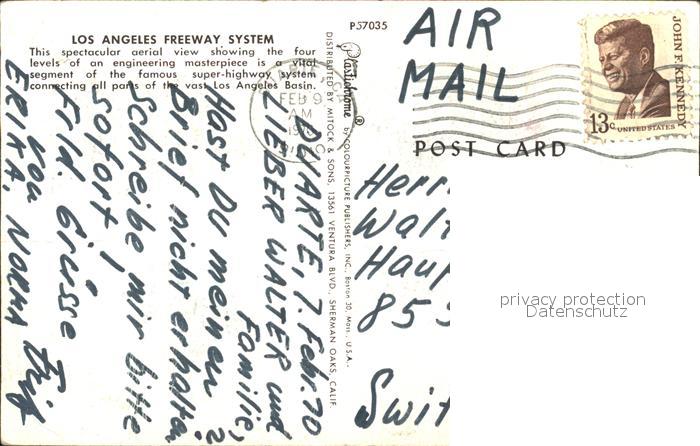 LOS ANGELES FREEWAY SYSTEM
This spectacular aerial view showing the four
levels of an engineering masterpiece is a vital
segment of the famous super-highway system
connecting all parts of the vast Los Angeles Basin.
P57035
Plastichrome ® by COLOURPICTURE PUBLISHERS, INC., Boston 30, Mass., U.S.A.
DISTRIBUTED BY MITOCK & SONS, 13561 VENTURA BLVD., SHERMAN OAKS, CALIF.
FEB 9
AM
AIR
MAIL
JOHN F. KENNEDY
13c UNITED STATES
POST CARD
7. Febr. 70
LIEBER WALTER und
Familie,
Hast Du meinen
Brief nicht erhalten?
Schreibe mir bitte
sofort!
Frdl. Grüsse
von
ERIKA, NORMA
Herr
Walt
Haup
855
Swit
privacy protection
Datenschutz